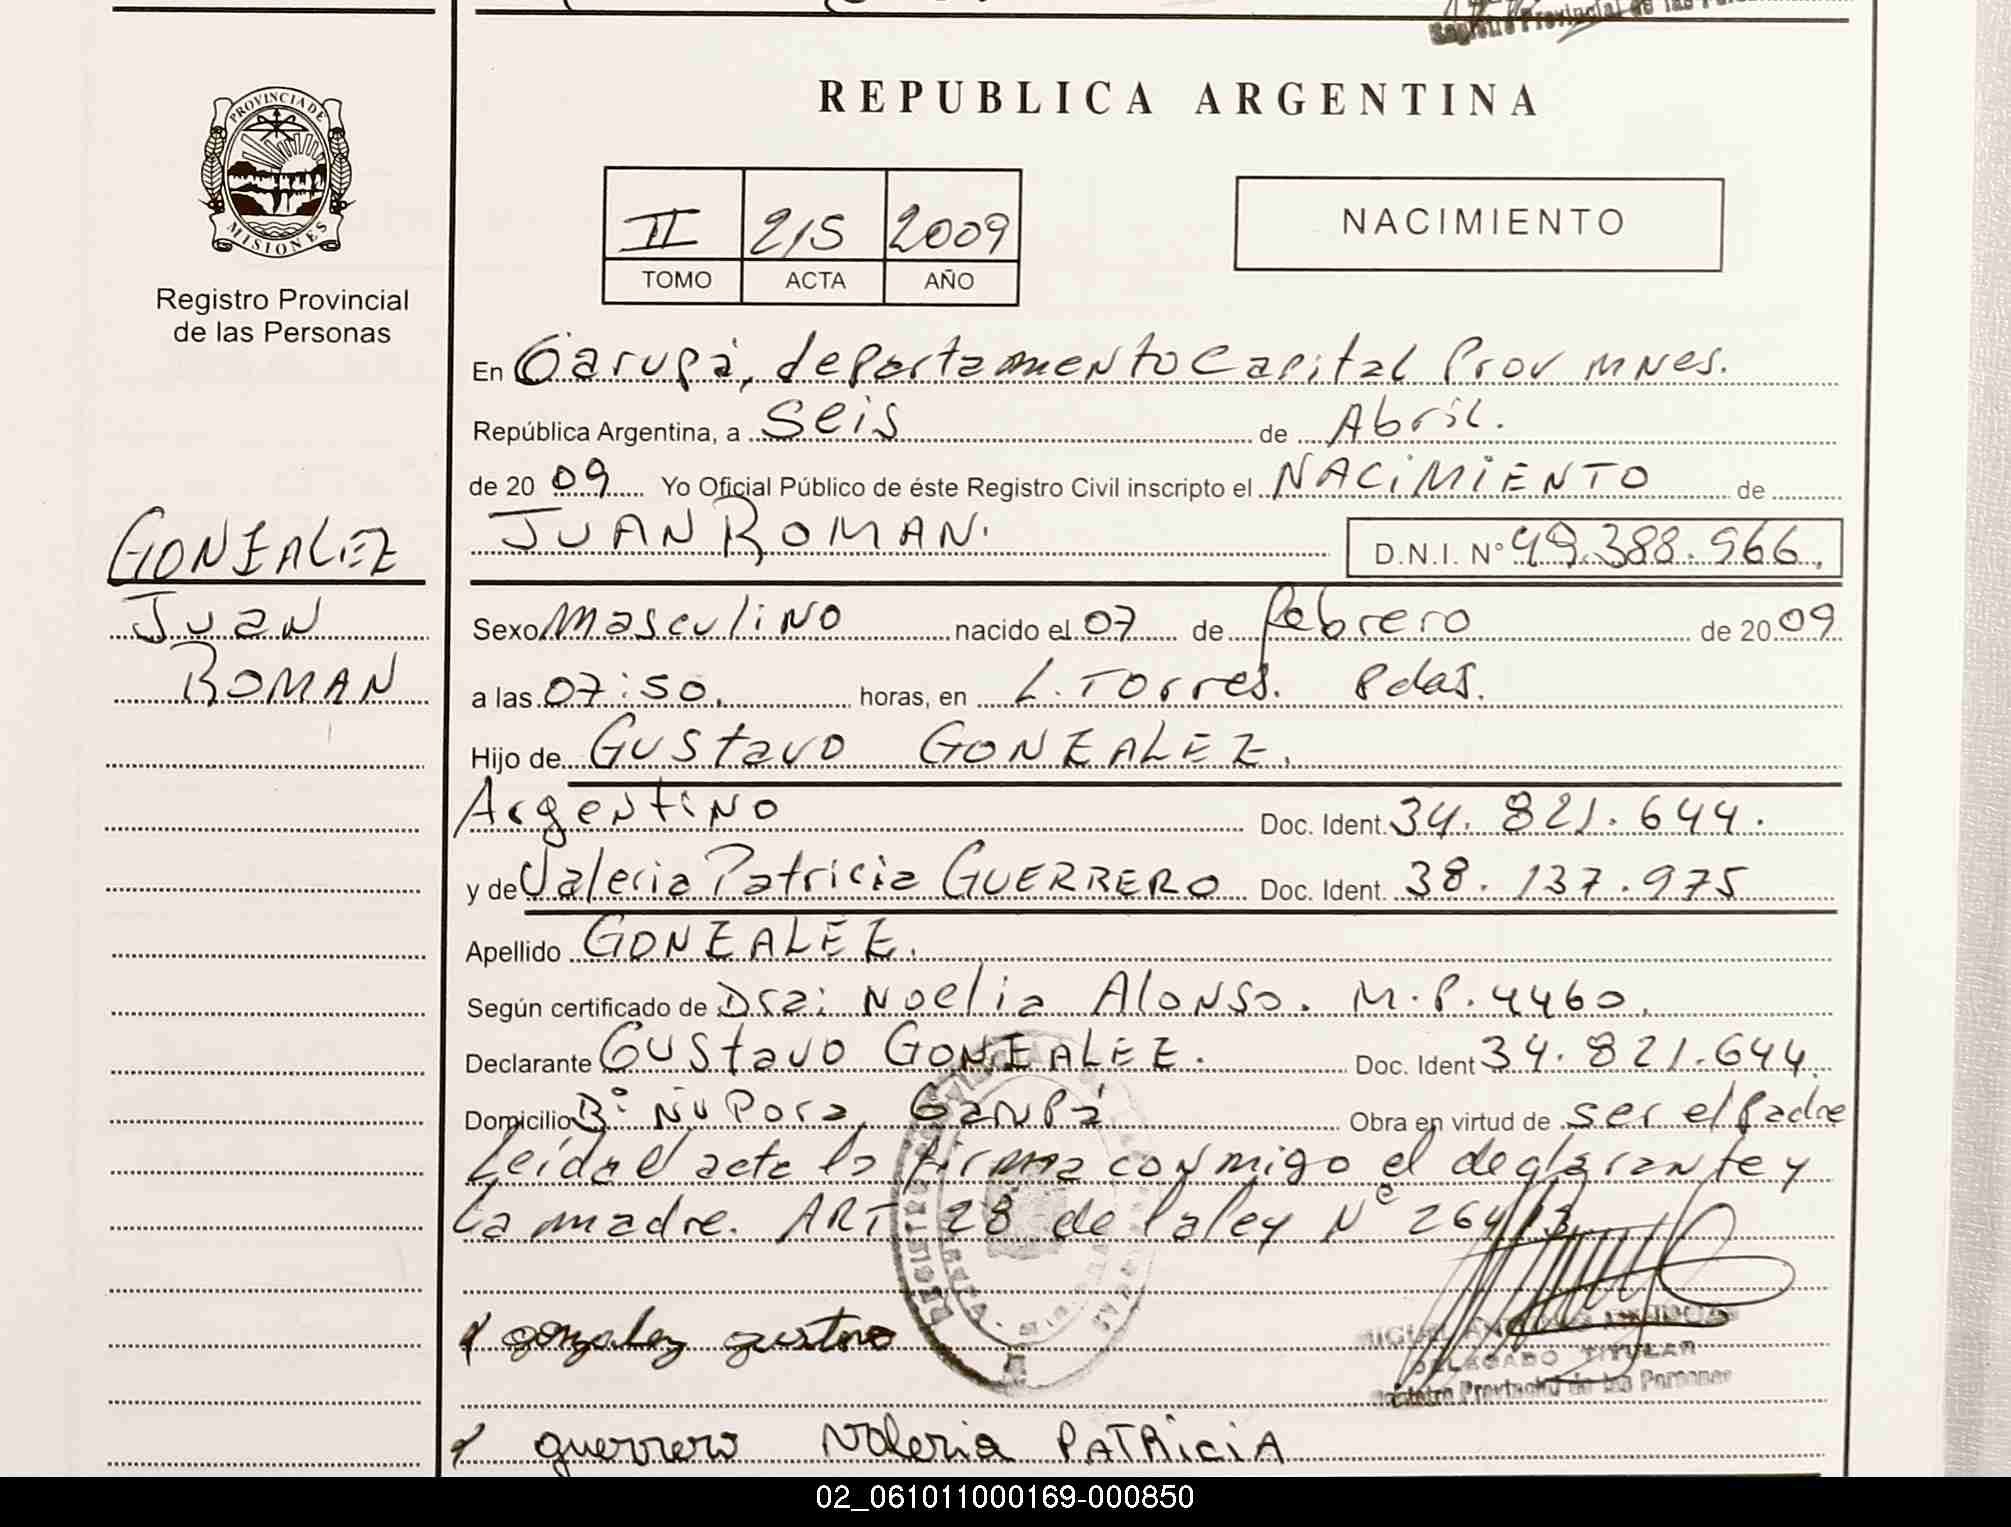 Registro Provincial de las Personas
REPUBLICA ARGENTINA
PROVINCIA DE
MISIONES
Registro Provincial
de las Personas
II 215 2009
TOMO ACTA AÑO
NACIMIENTO
En Garupá, departamento Capital Prov Mnes.
República Argentina, a Seis de Abril.
de 20 09 Yo Oficial Público de éste Registro Civil inscripto el NACIMIENTO de
JUAN ROMAN. D.N.I. N° 49.388.966.
GONZALEZ
Juan
ROMAN
Sexo Masculino nacido el 07 de febrero de 20 09
a las 07:50. horas, en L. Torres. Pdas.
Hijo de Gustavo GONZALEZ.
Argentino Doc. Ident. 34.821.644.
y de Valeria Patricia GUERRERO Doc. Ident. 38.137.975
Apellido GONZALEZ.
Según certificado de Dra: Noelia Alonso. M.P.4460.
Declarante Gustavo GONZALEZ. Doc. Ident 34.821.644.
Domicilio B° Ñu Pora, Garupá Obra en virtud de ser el Padre
Leída el acta la firma conmigo el declarante y
La madre. ART 28 de la ley N° 26413
gonzalez gustavo
DELEGADO TITULAR
Registro Provincial de las Personas
guerrero Valeria PATRICIA
02_061011000169-000850